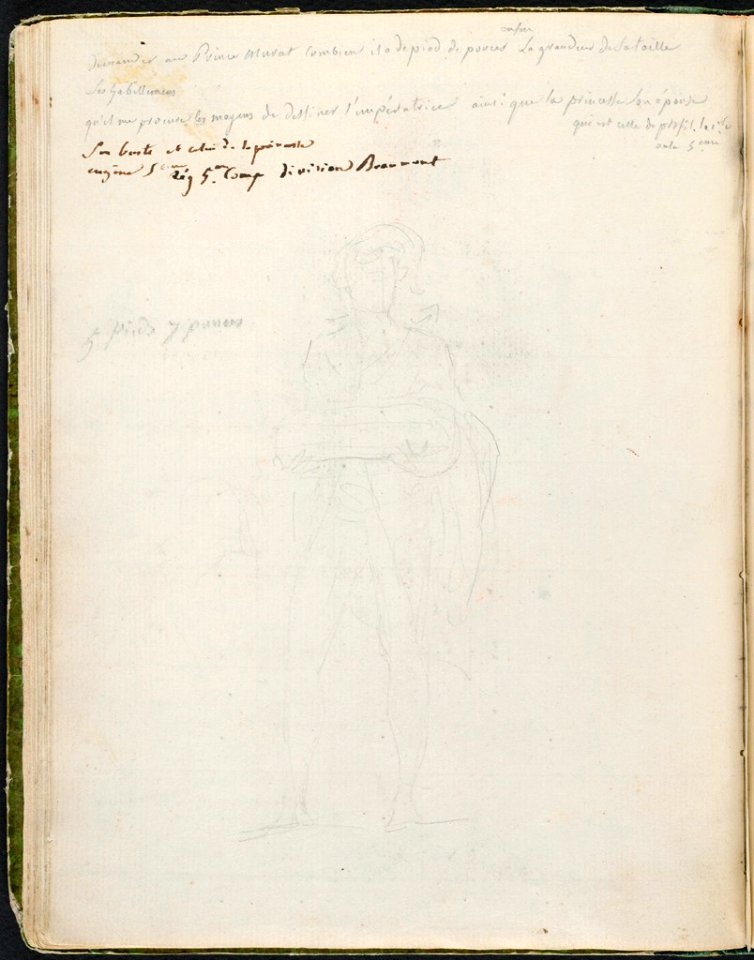 enfin
demander au Prince Murat Combien il a de pied de pouces La grandeur de Sa taille
Ses habillemens
qu'il me procure les moyens de dessiner l'impératrice ainsi que la princesse Son épouse
qui est celle de profil. la
5 eme
Son buste et celui de la princesse
eugène 5 eme Rég 5 eme Comp division Beaumont
5 Pieds 7 pouces